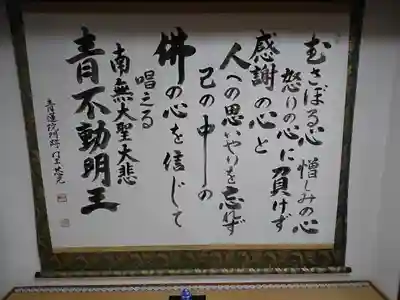 むさぼる心 憎しみの心
怒りの心に負けず
感謝の心と
人への思いやりを忘れず
己の中の
佛の心を信じて
唱える
南無大聖大悲
青不動明王
青蓮院門跡門主